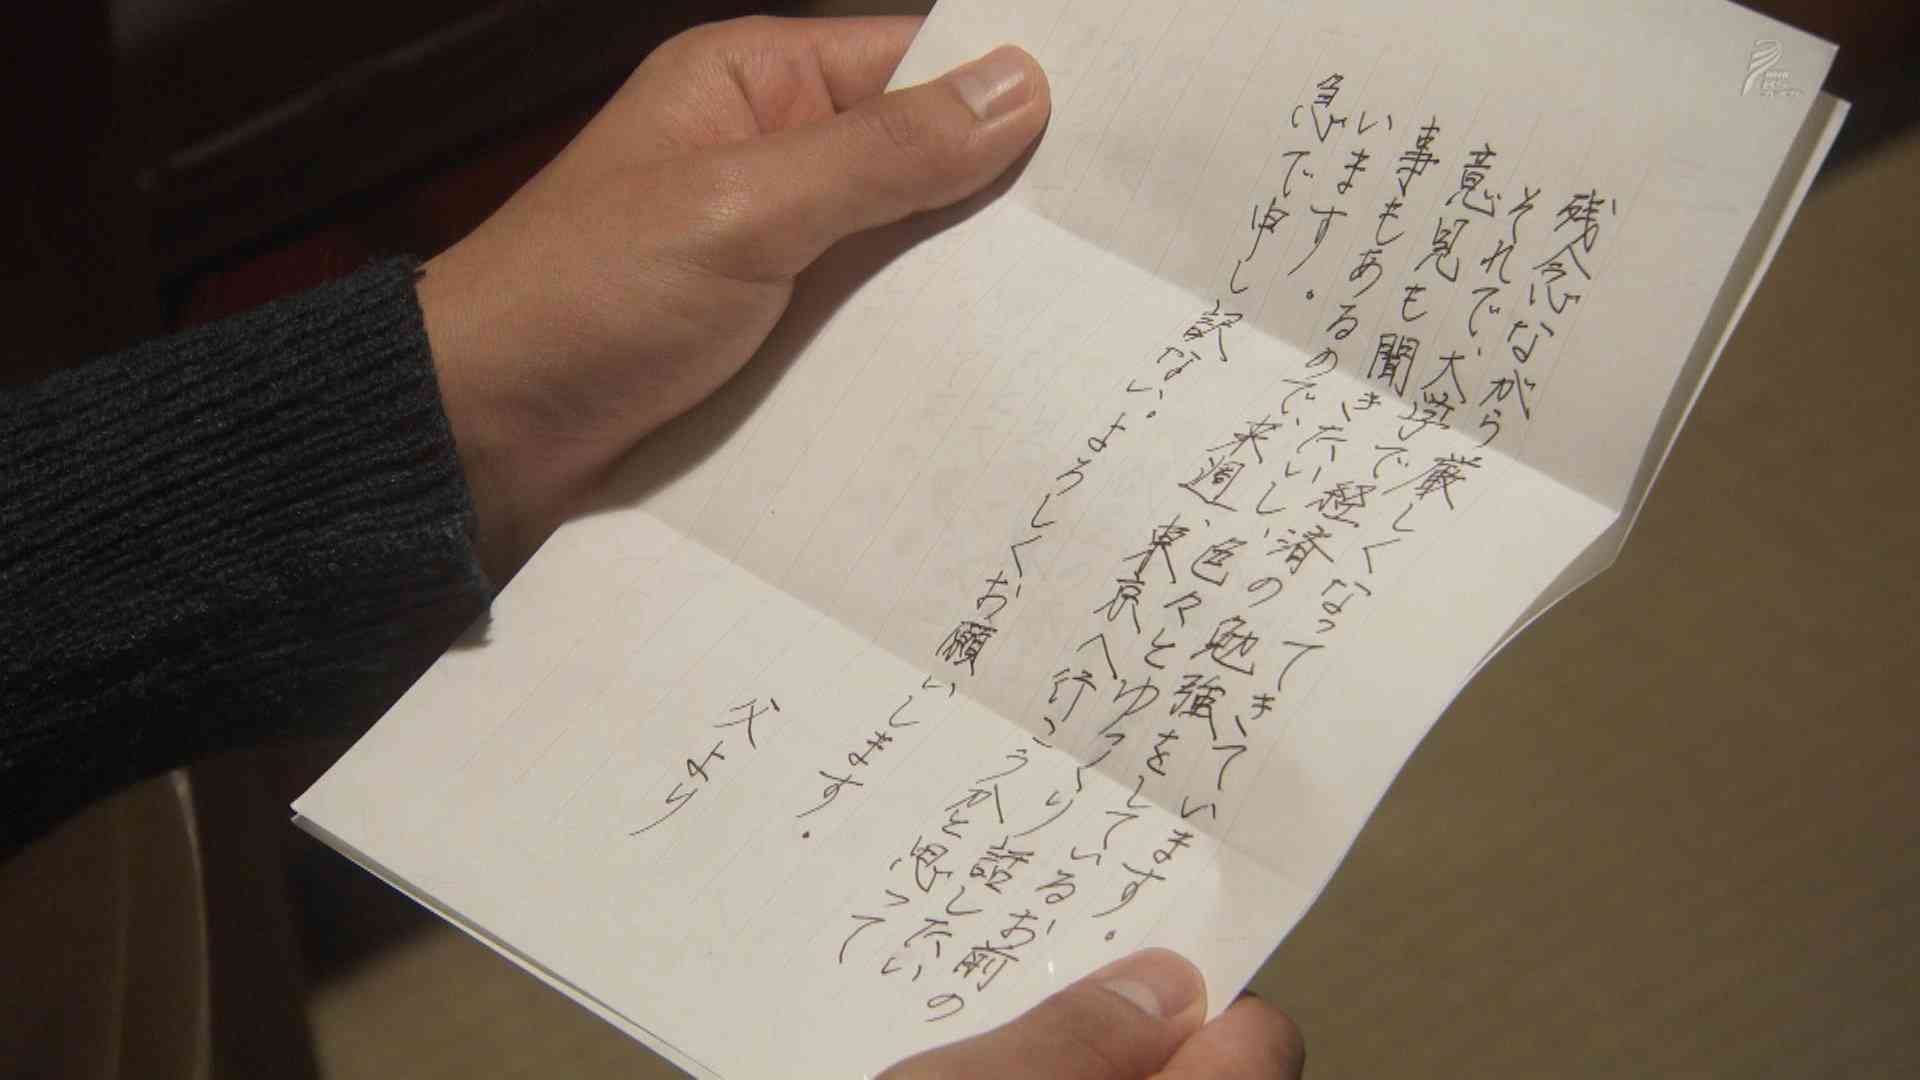 残念ながら厳しくなってきています。
それで、大学で経済の勉強をしているお前の
意見も聞きたいし、色々とゆっくり話したい
事もあるので、来週、東京へ行こうかと思って
います。
急で申し訳ない。よろしくお願いします。
父より